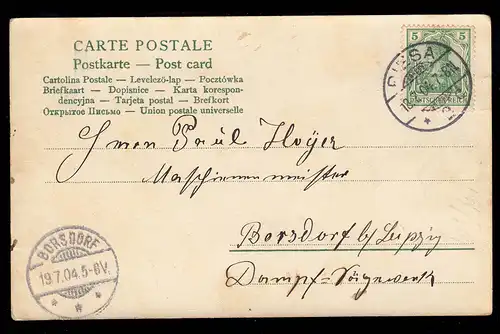 CARTE POSTALE
Postkarte — Post card
Cartolina Postale — Levelező-lap — Pocztówka
Briefkaart — Dopisnice — Karta korespon-
dencyjna — Tarjeta postal — Brefkort
Открытое Письмо — Union postale universelle
5 5
DEUTSCHES REICH
RIESA
Herrn Paul Hoyer
Maschienenmeister
Borsdorf b/Leipzig
Dampf-Sägewerk
BORSDORF
19.7.04.5-6V.